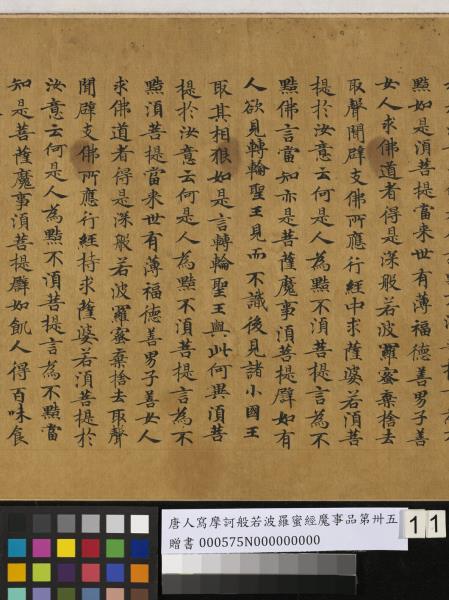 黠如是須菩提當来世有薄福德善男子善
女人求佛道者得是深般若波羅蜜棄捨去
取聲聞辟支佛所應行經中求薩婆若須菩
提於汝意云何是人為黠不須菩提言為不
黠佛言當知亦是菩薩魔事須菩提譬如有
人欲見轉輪聖王見而不識後見諸小國王
取其相貌如是言轉輪聖王與此何異須菩
提於汝意云何是人為黠不須菩提言為不
黠須菩提當来世有薄福德善男子善女人
求佛道者得是深般若波羅蜜棄捨去取聲
聞辟支佛所應行經持求薩婆若須菩提於
汝意云何是人為黠不須菩提言為不黠當
知是菩薩魔事須菩提譬如飢人得百味食
唐人寫摩訶般若波羅蜜經魔事品第卅五
贈書 000575N000000000
11